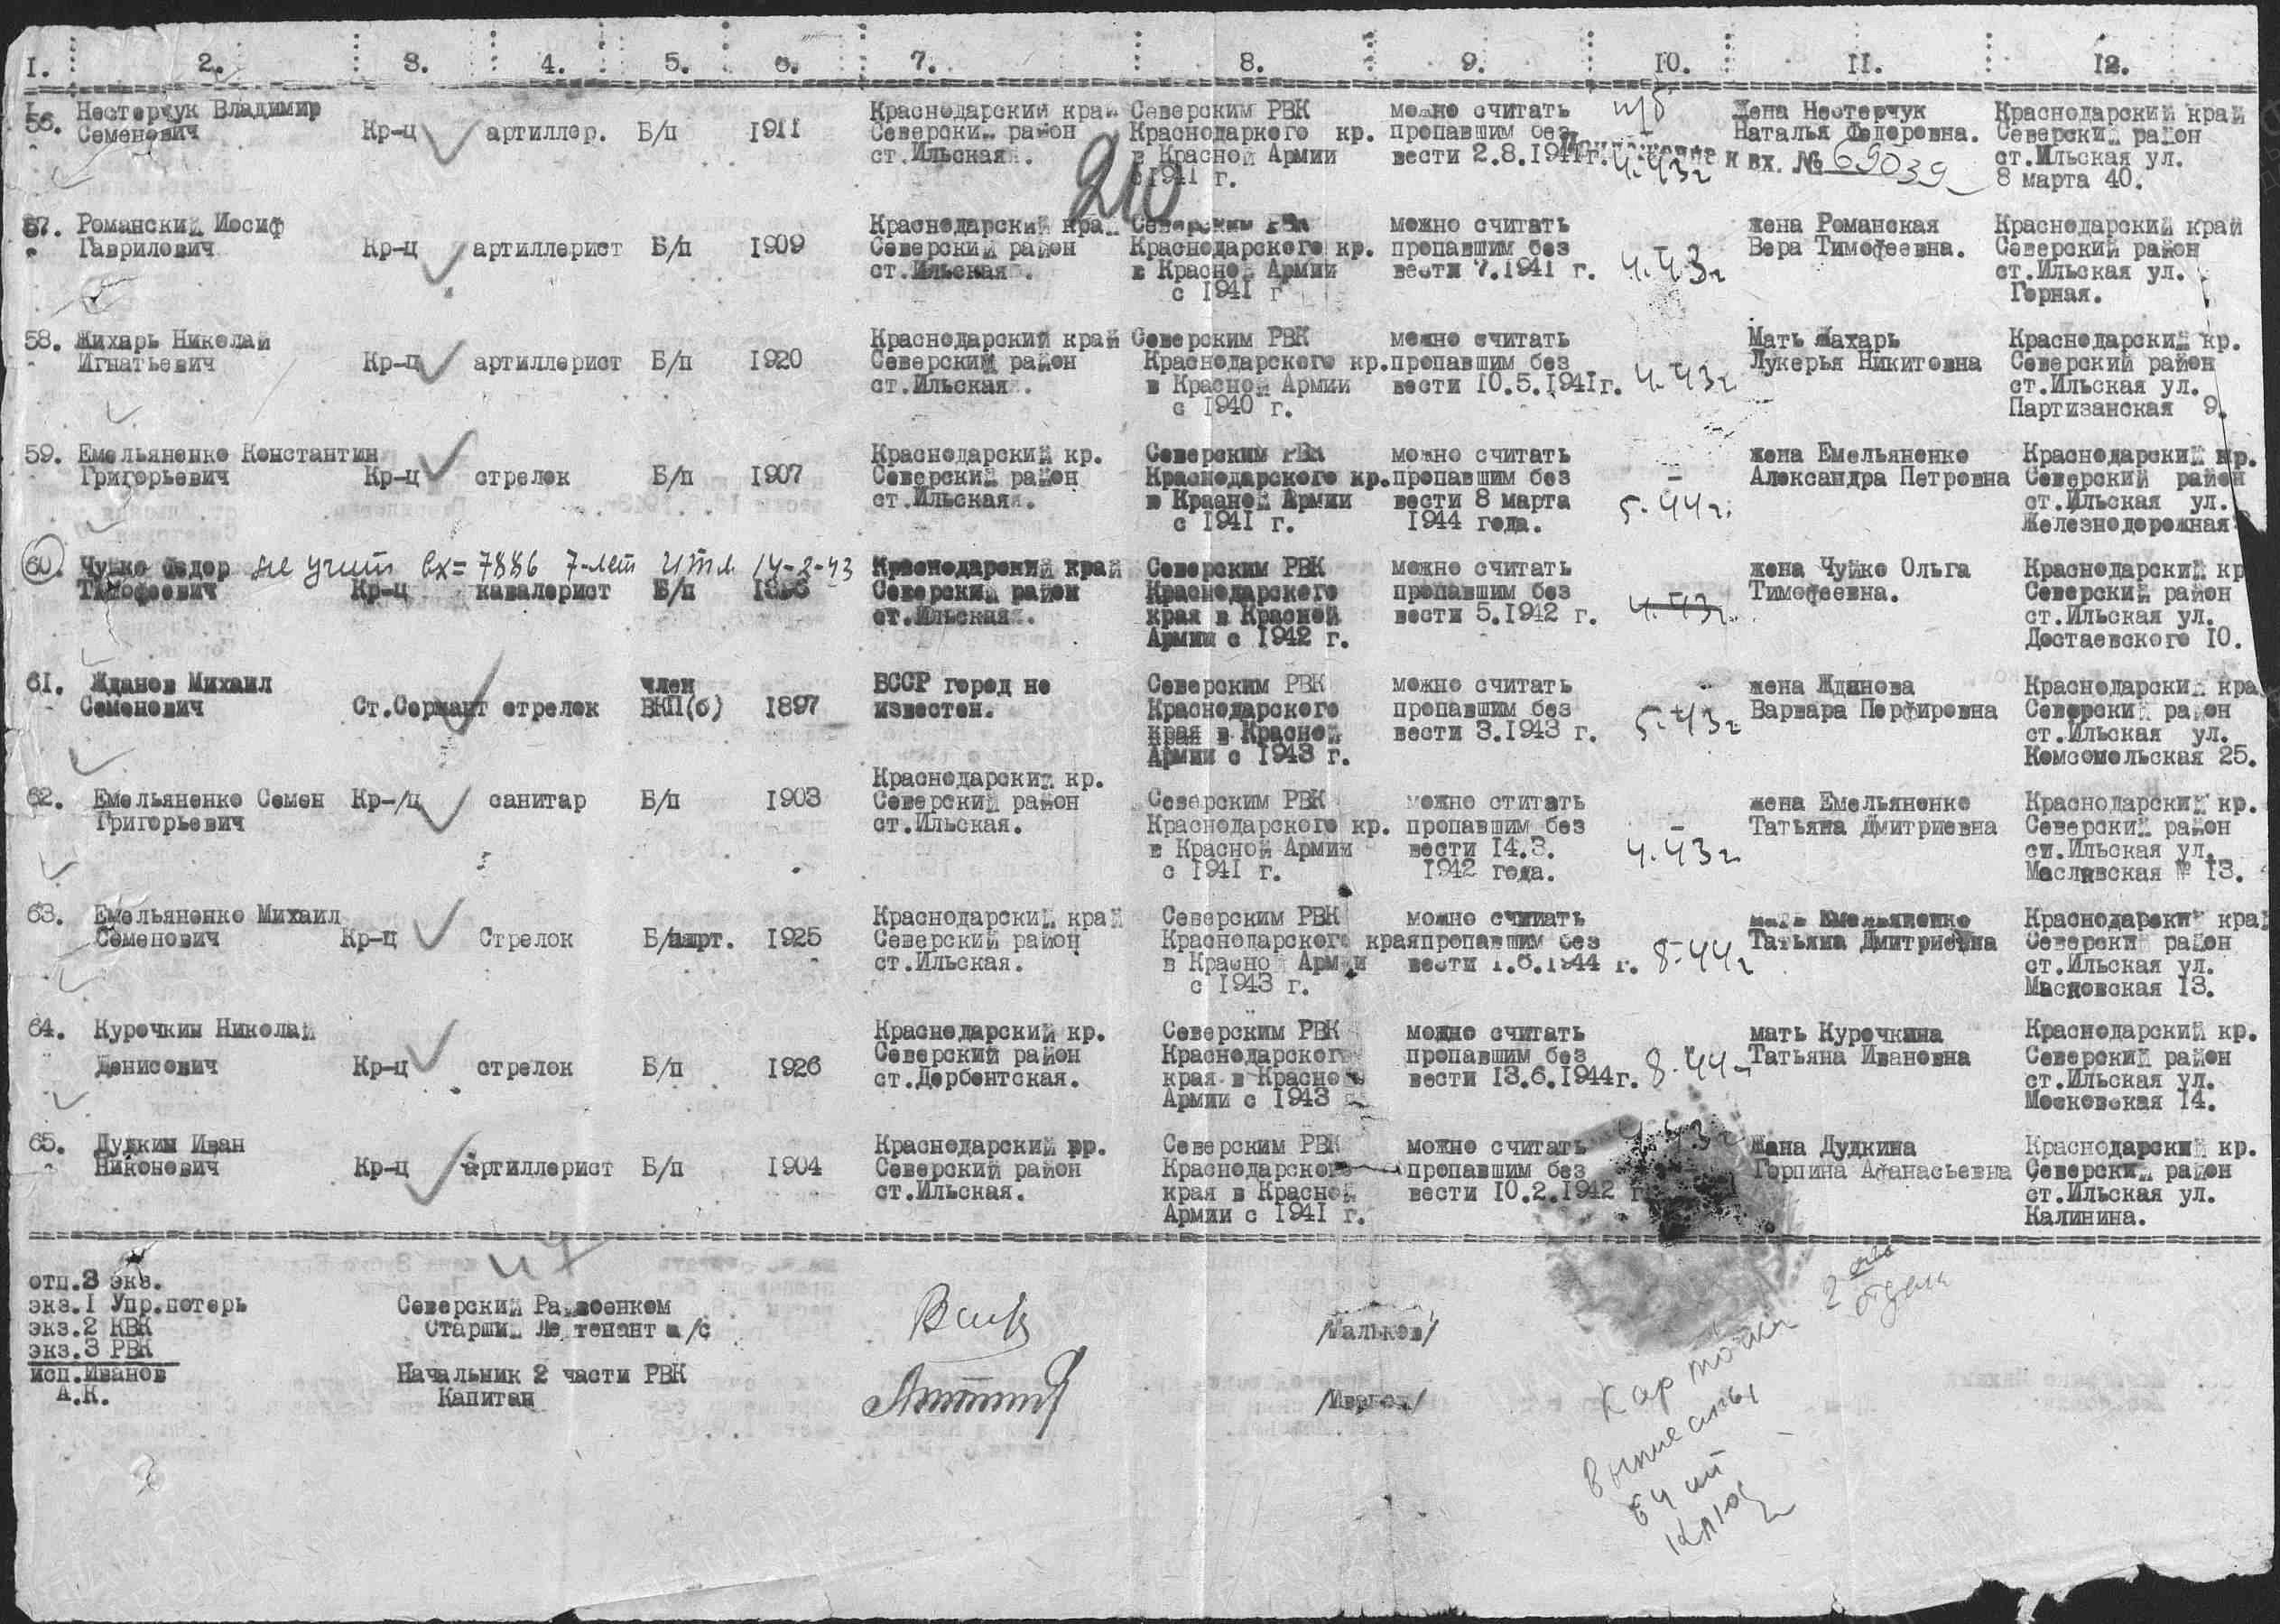 I. 2. 3. 4. 5. 6. 7. 8. 9. 10. 11. 12.
56. Нестерчук Владимир Краснодарский край Северским РВК можно считать п/б Жена Нестерчук Краснодарский край
Семенович Кр-ц артиллер. Б/п 1911 Северский район Краснодаркого кр. пропавшим без Наталья Федоровна. Северский район
ст.Ильская. в Красной Армии вести 2.8.1941г. 4.43г вх. № 69039 ст.Ильская ул.
210 с 1941 г. 8 марта 40.
57. Романский Иосиф Краснодарский край Северским РВК можно считать жена Романская Краснодарский край
Гаврилович Кр-ц артиллерист Б/п 1909 Северский район Краснодарского кр. пропавшим без Вера Тимофеевна. Северский район
ст.Ильская. в Красной Армии вести 7.1941 г. 4.43г ст.Ильская ул.
с 1941 г Горная.
58. Жихарь Николай Краснодарский край Северским РВК можно считать Мать Жахарь Краснодарский кр.
Игнатьевич Кр-ц артиллерист Б/п 1920 Северский район Краснодарского кр. пропавшим без Лукерья Никитовна Северский район
ст.Ильская. в Красной Армии вести 10.5.1941г. 4.43г ст.Ильская ул.
с 1940 г. Партизанская 9.
59. Емельяненко Константин Краснодарский кр. Северским РВК можно считать жена Емельяненко Краснодарский кр.
Григорьевич Кр-ц стрелок Б/п 1907 Северский район Краснодарского кр. пропавшим без Александра Петровна Северский район
ст.Ильская. в Красной Армии вести 8 марта 5.44г. ст.Ильская ул.
с 1941 г. 1944 года. Железнодорожная
60. Чуйко Федор не учит вх=7886 7-лет итл 14-2-43 Краснодарский край Северским РВК можно считать жена Чуйко Ольга Краснодарский кр
Тимофеевич Кр-ц кавалерист Б/п Северский район Краснодарского пропавшим без Тимофеевна. Северский район
ст.Ильская. края в Красной вести 5.1942 г. 4.43г. ст.Ильская ул.
Армии с 1942 г. Достаевского 10.
61. Жданов Михаил член БССР город не Северским РВК можно считать жена Жданова Краснодарский кра
Семенович Ст.Сержант стрелок ВКП(б) 1897 известен. Краснодарского пропавшим без Варвара Порфировна Северский район
края в Красной вести 3.1943 г. 5.43г ст.Ильская ул.
Армии с 1943 г. Комсомольская 25.
Краснодарский кр.
62. Емельяненко Семен Кр-/ц санитар Б/п 1903 Северский район Северским РВК можно ститать жена Емельяненко Краснодарский кр.
Григорьевич ст.Ильская. Краснодарского кр. пропавшим без Татьяна Дмитриевна Северский район
в Красной Армии вести 14.3. 4.43г ст.Ильская ул.
с 1941 г. 1942 года. № 13.
63. Емельяненко Михаил Краснодарский край Северским РВК можно считать мать Емельяненко Краснодарский край
Семенович Кр-ц Стрелок Б/парт. 1925 Северский район Краснодарского края пропавшим без Татьяна Дмитриевна Северский район
ст.Ильская. в Красной Армии вести 1.6.1944 г. 8-44г ст.Ильская ул.
с 1943 г. 13.
64. Курочкин Николай Краснодарский кр. Северским РВК можно считать мать Курочкина Краснодарский кр.
Денисович Кр-ц стрелок Б/п 1926 Северский район Краснодарского пропавшим без Татьяна Ивановна Северский район
ст.Дербентская. края в Красной вести 13.6.1944г. 8.44г ст.Ильская ул.
Армии с 1943 Московская 14.
65. Дудкин Иван Краснодарский кр. Северским РВК можно считать 4.43г Жена Дудкина Краснодарский кр.
Никонович Кр-ц артиллерист Б/п 1904 Северский район Краснодарского пропавшим без Горпина Афанасьевна Северский район
ст.Ильская. края в Красной вести 10.2.1942 г ст.Ильская ул.
Армии с 1941 г. Калинина.
отп.3 экз.
экз.I Упр.потерь Северский Райвоенком
экз.2 КВК Старший Лейтенант а/с /Мальков/
экз.3 РВК
исп.Иванов Начальник 2 части РВК
А.К. Капитан /Иванов/
2 отдела
Карточки
выписаны